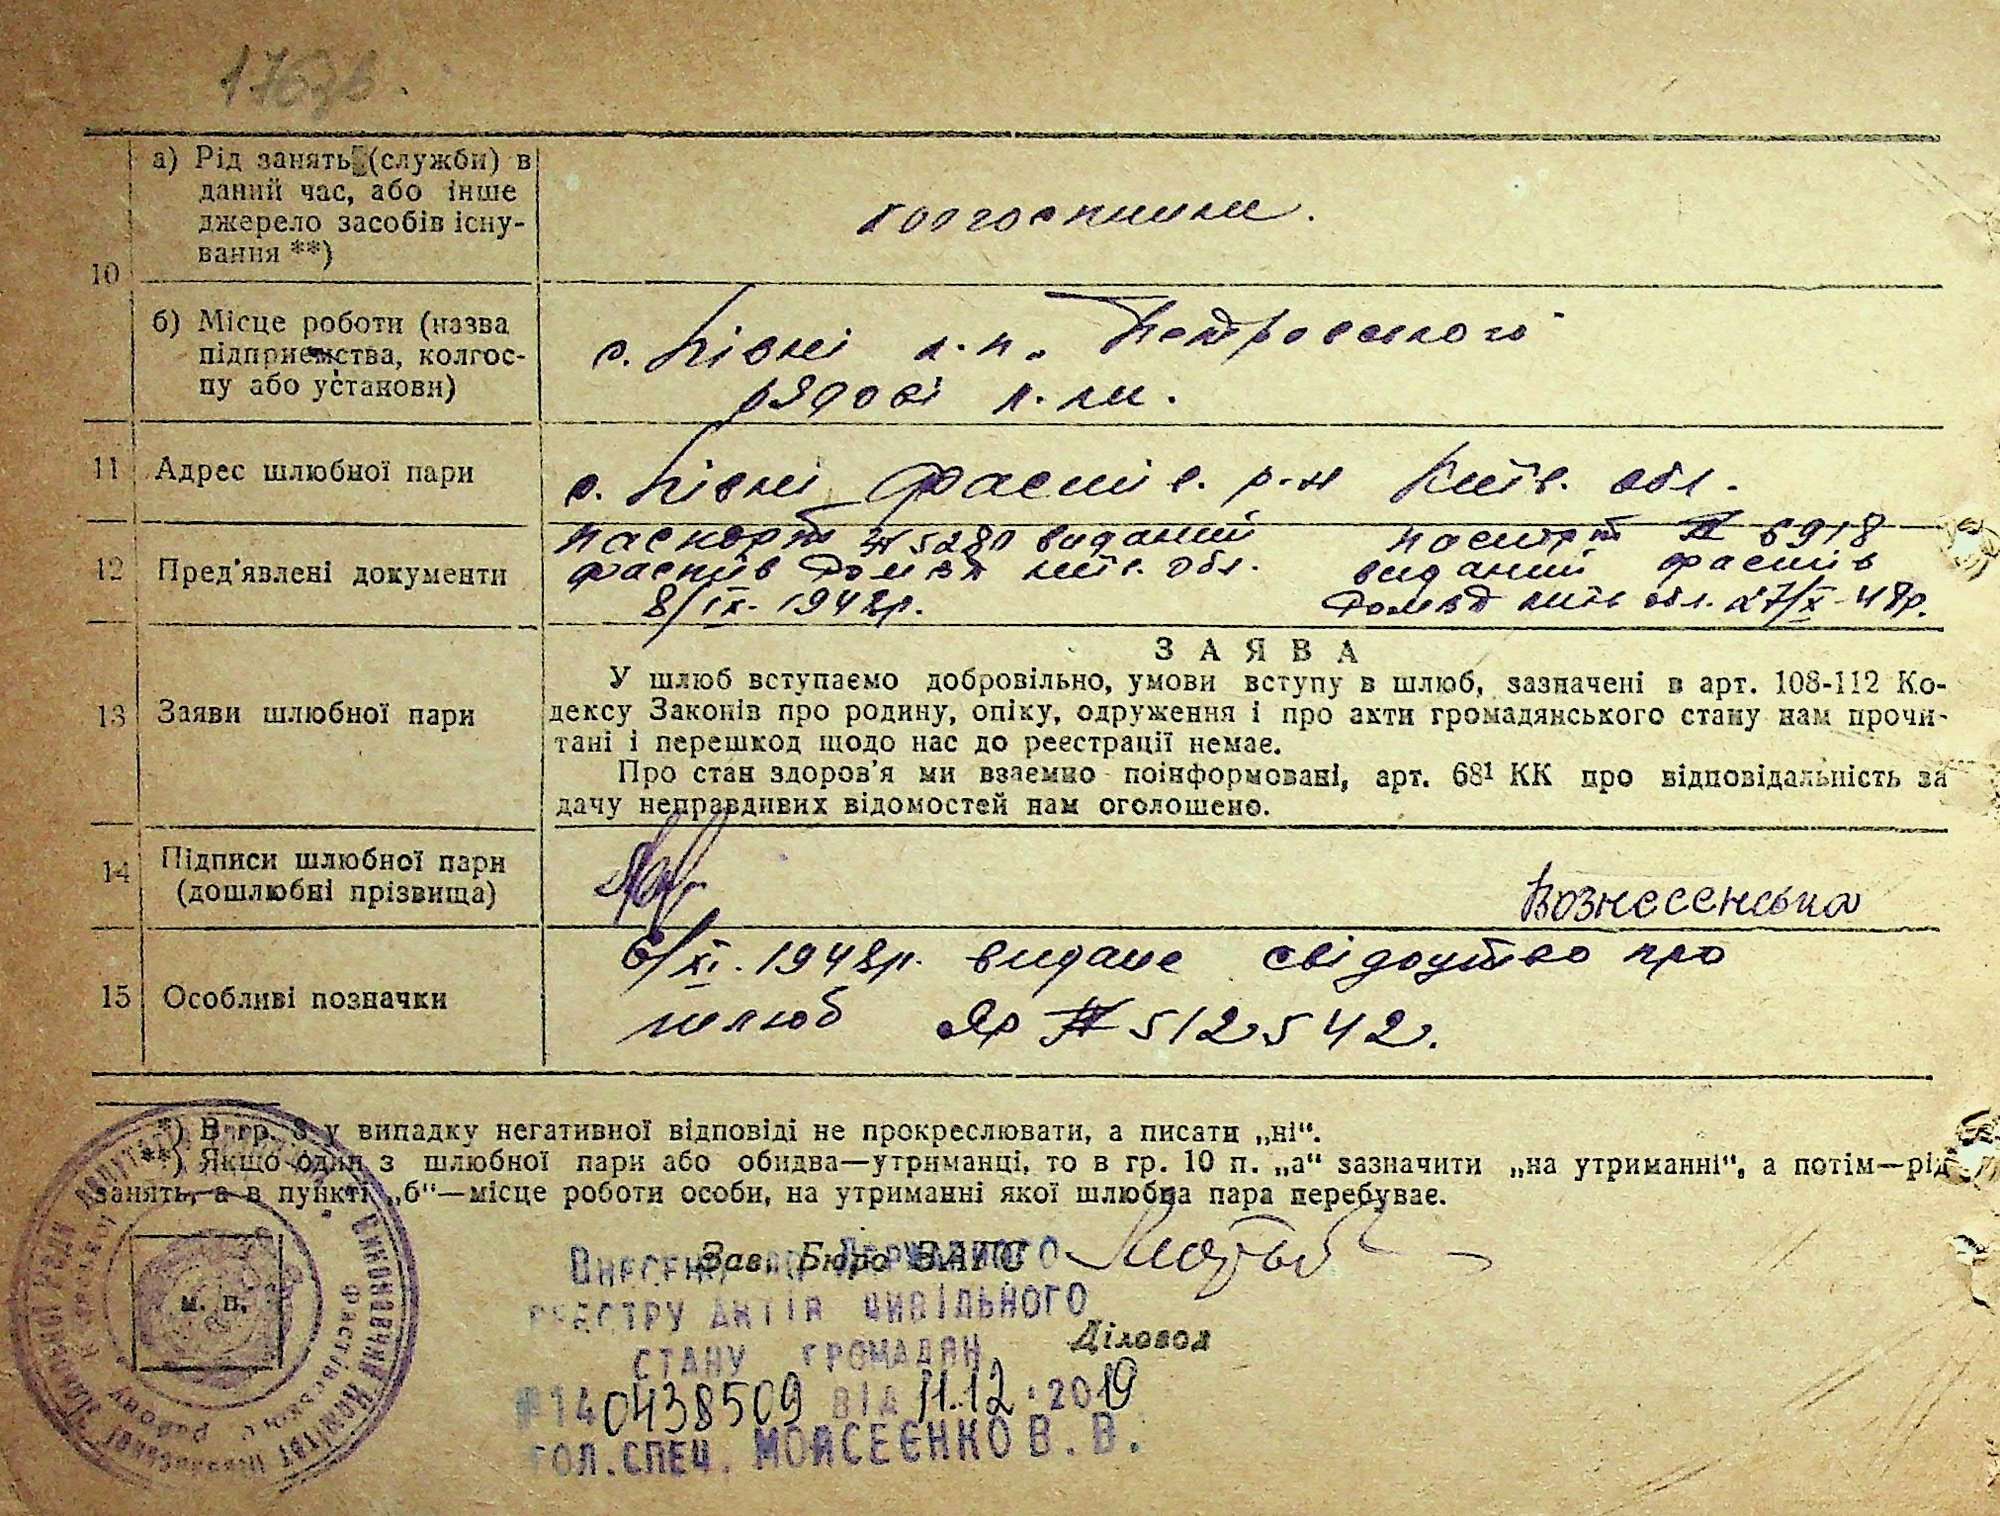 176зв.
10
а) Рід занять (службы) в
даний час, або інше
джерело засобів існу-
вання **)
колгоспники.
б) Місце роботи (назва
підприємства, колгос-
пу або установи)
с. Півні к-п. Петровського
рядові к-ки.
11 Адрес шлюбної пари
с. Півні Фастів. р-н Київ. обл.
12 Пред'явлені документи
паспорт № 5280 виданий
Фастів РОМВД Київ. обл.
8/IX. 1948р.
паспорт № 6918
виданий Фастів
РОМВД Київ обл. 27/X-48р.
13 Заяви шлюбної пари
ЗАЯВА
У шлюб вступаємо добровільно, умови вступу в шлюб, зазначені в арт. 108-112 Ко-
дексу Законів про родину, опіку, одруження і про акти громадянського стану нам прочи-
тані і перешкод щодо нас до реєстрації немає.
Про стан здоров'я ми взаємно поінформовані, арт. 68¹ КК про відповідальність за
дачу неправдивих відомостей нам оголошено.
14 Підписи шлюбної пари
(дошлюбні прізвища)
Вознесенська
15 Особливі позначки
6/XI. 1948р. видане свідоцтво про
шлюб ЯР № 512542.
*) В гр. 8 у випадку негативної відповіді не прокреслювати, а писати „ні“.
**) Якщо один з шлюбної пари або обидва—утриманці, то в гр. 10 п. „а“ зазначити „на утриманні“, а потім—рід
занять, а в пункті „б“—місце роботи особи, на утриманні якої шлюбна пара перебуває.
Зав. Бюро ЗАГС
Діловод
м. п.
Внесено до Державного
реєстру актів цивільного
стану громадян
№140438509 від 11.12.2019
гол.спец. Моисеєнко В.В.